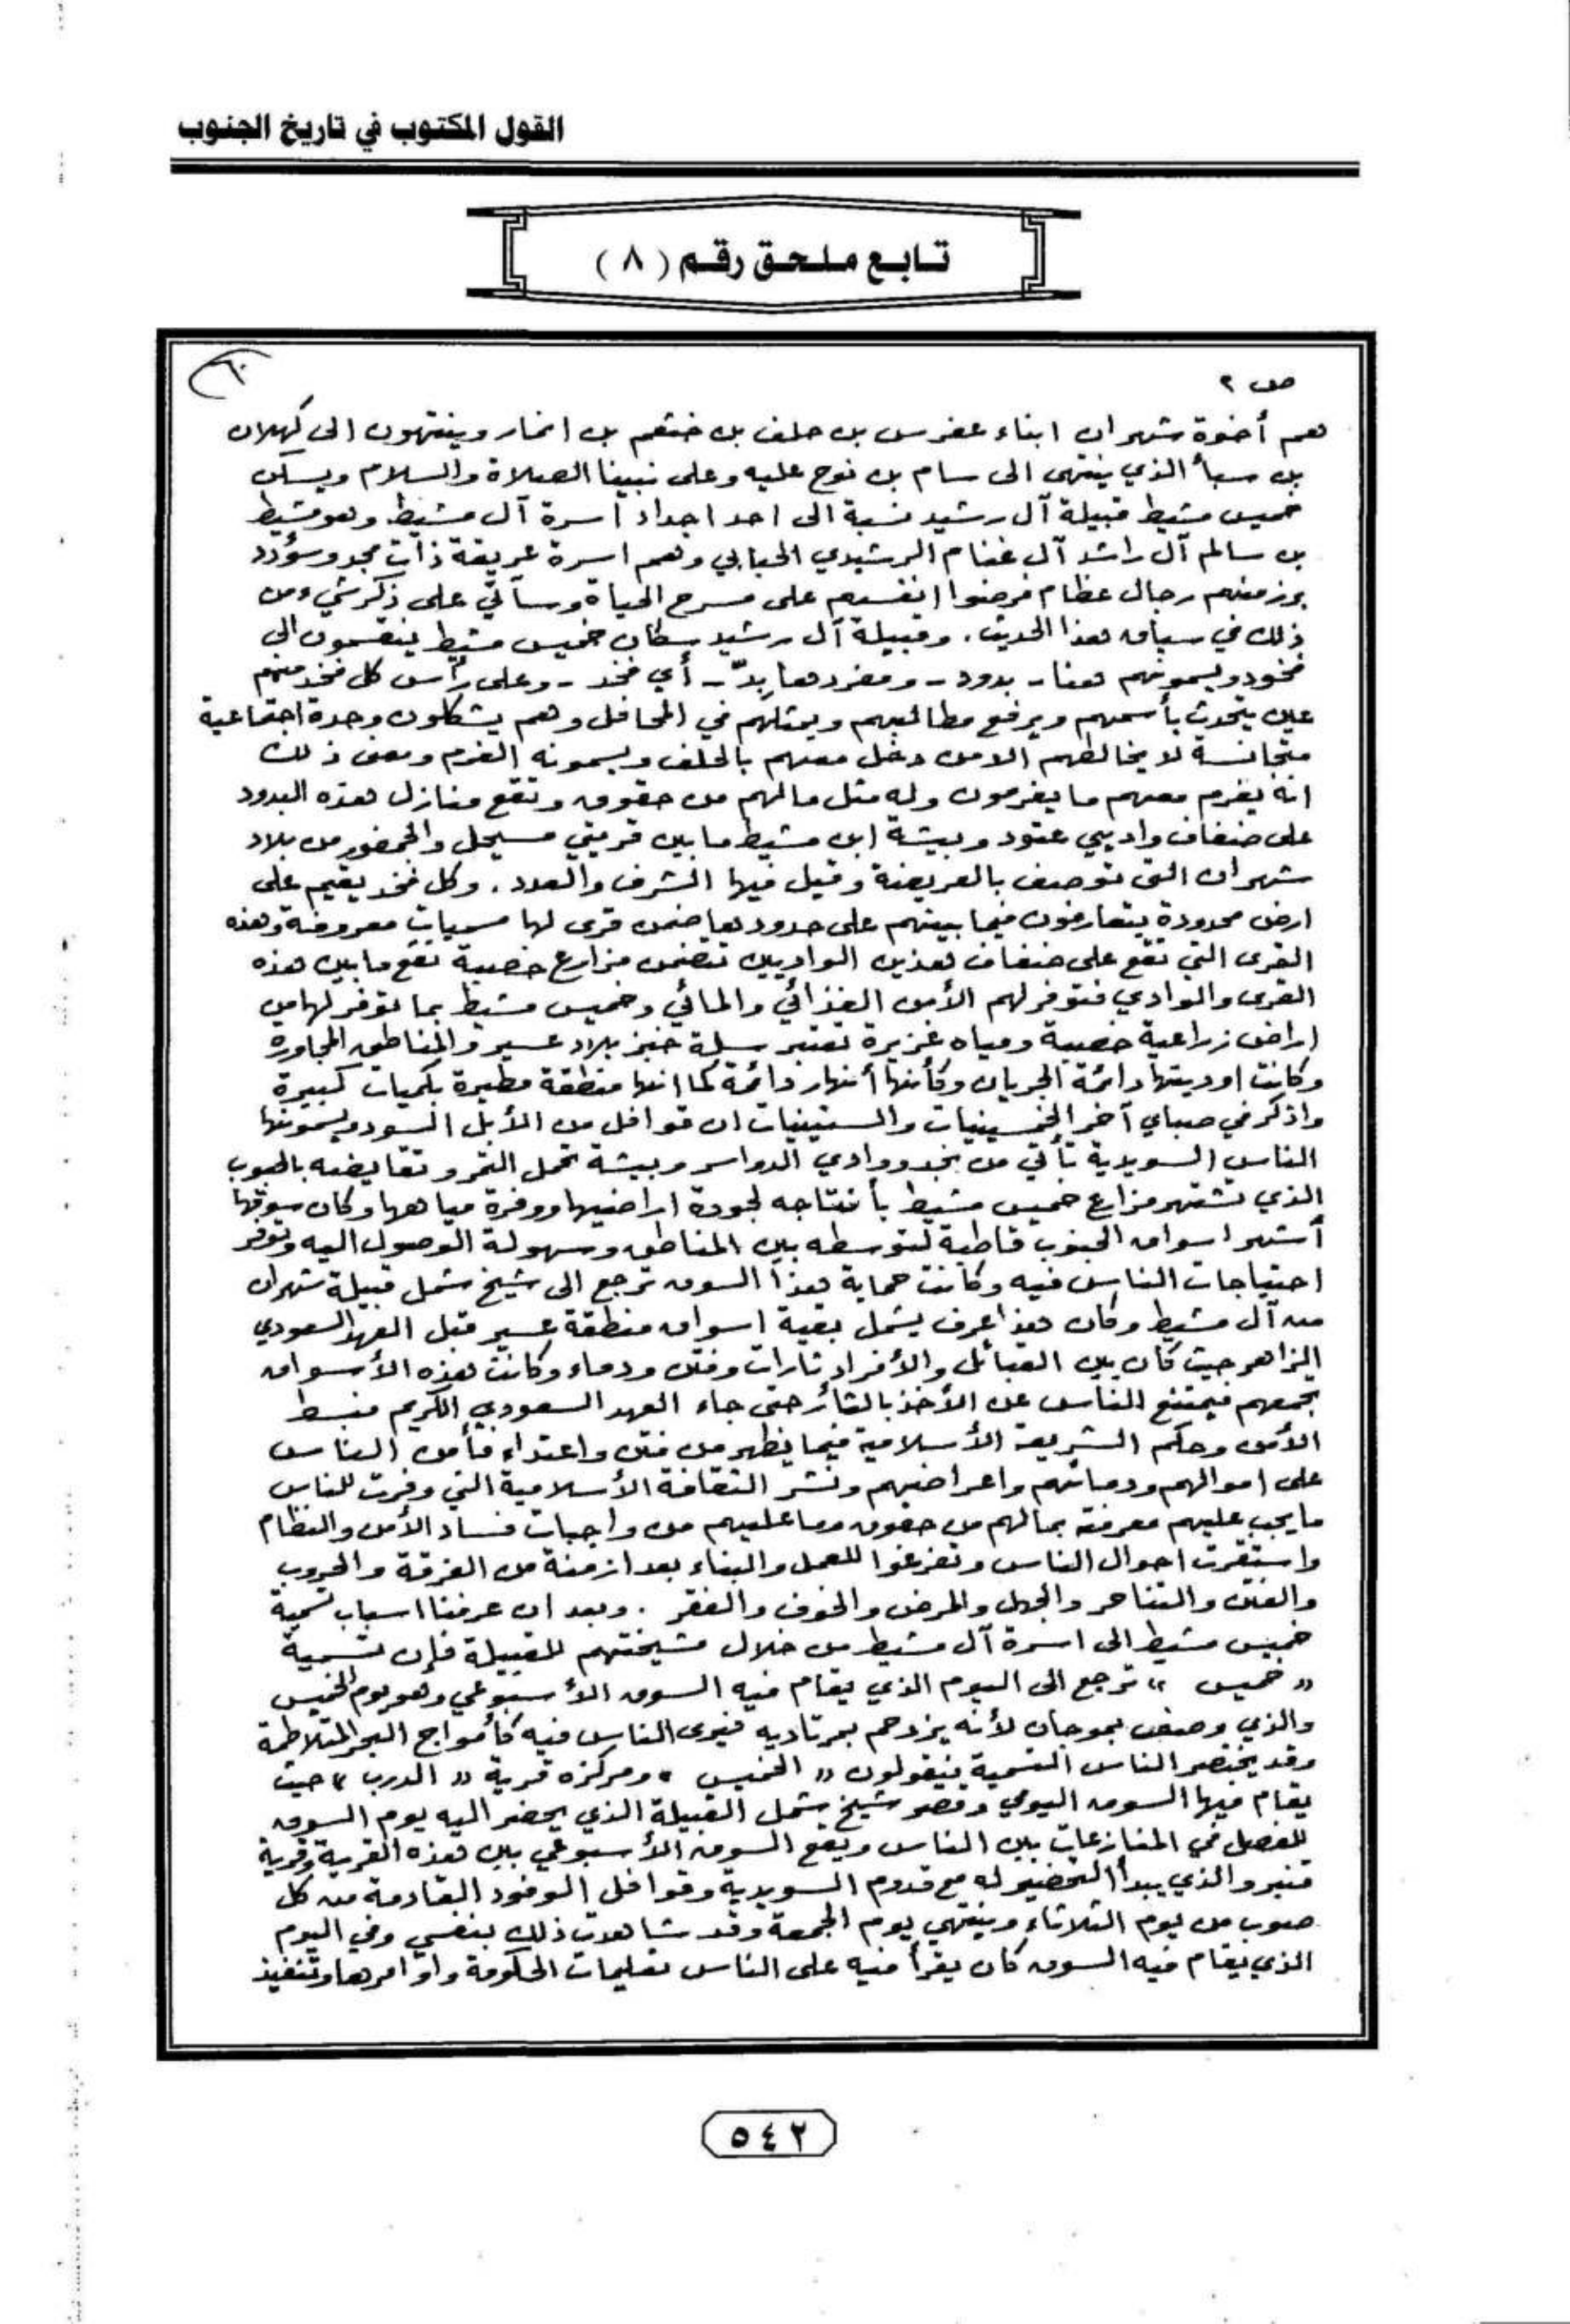 القول المكتوب في تاريخ الجنوب
تابع ملحق رقم (٨)
ص ٢
هم أخوة شهران ابناء عفرس بن حلف بن خثعم بن انمار وينتهون الى كهلان
بن سبأ الذي ينتهي الى سام بن نوح عليه وعلى نبينا الصلاة والسلام ويسكن
خميس مشيط قبيلة آل رشيد نسبة الى احد اجداد اسرة آل مشيط وهو مشيط
بن سالم آل راشد آل غنام الرشيدي الحبابي وهم اسرة عريقة ذات مجد وسؤدد
برز منهم رجال عظام فرضوا انفسهم على مسرح الحياة وسآتي على ذكر شيء من
ذلك في سياق هذا الحديث. وقبيلة آل رشيد سكان خميس مشيط ينقسمون الى
فخود ويسمونهم هنا - بدود - ومفردها بدّ - أي فخذ - وعلى رأس كل فخذ منهم
عين يتحدث بأسمهم ويرفع مطالبهم ويمثلهم في المحافل وهم يشكلون وحدة اجتماعية
متجانسة لا يخالطهم الا من دخل معهم بالحلف ويسمونه الغرم ومعنى ذلك
انه يغرم معهم ما يغرمون وله مثل مالهم من حقوق وتقع منازل هذه البدود
على ضفاف واديي عتود وبيشة ابن مشيط ما بين قريتي مسيحل والحمضور من بلاد
شهران التي توصف بالعريضة وقيل فيها الشرف والعدد. وكل فخذ يقيم على
ارض محدودة يتعارفون فيما بينهم على حدودها ضمن قرى لها مسميات معروفة وهذه
القرى التي تقع على ضفاف هذين الواديين تتضمن مزارع خصبة تقع ما بين هذه
القرى والوادي فتوفر لهم الأمن الغذائي والمائي وخميس مشيط بما توفر لها من
اراض زراعية خصبة ومياه غزيرة تعتبر سلة خبز بلاد عسير والمناطق المجاورة
وكانت اوديتها دائمة الجريان وكأنها أنهار دائمة كما انها منطقة مطيرة بكميات كبيرة
واذكر في صباي آخر الخمسينيات والستينيات ان قوافل من الأبل السود ويسمونها
الناس السويدية تأتي من نجد ووادي الدواسر وبيشة تحمل التمر وتقايضه بالحبوب
الذي تشتهر مزارع خميس مشيط بأنتاجه لجودة اراضيها ووفرة مياهها وكان سوقها
أشهر اسواق الجنوب قاطبة لتوسطه بين المناطق وسهولة الوصول اليه وتوفر
احتياجات الناس فيه وكانت حماية هذا السوق ترجع الى شيخ شمل قبيلة شهران
من آل مشيط وكان هذا عرف يشمل بقية اسواق منطقة عسير قبل العهد السعودي
الزاهر حيث كان بين القبائل والأفراد ثارات وفتن ودماء وكانت هذه الأسواق
تجمعهم فيمتنع الناس عن الأخذ بالثأر حتى جاء العهد السعودي الكريم فبسط
الأمن وحكم الشريعة الأسلامية فيما يظهر من فتن واعتداء فأمن الناس
على اموالهم ودمائهم واعراضهم ونشر الثقافة الأسلامية التي وفرت للناس
ما يجب عليهم معرفته بمالهم من حقوق وما عليهم من واجبات فساد الأمن والنظام
واستقرت احوال الناس وتفرغوا للعمل والبناء بعد ازمنة من الفرقة والحروب
والفتن والتناحر والجهل والمرض والخوف والفقر . وبعد ان عرفنا اسباب تسمية
خميس مشيط الى اسرة آل مشيط من خلال مشيختهم للقبيلة فإن تسمية
« خميس » ترجع الى اليوم الذي يقام فيه السوق الأسبوعي وهو يوم الخميس
والذي وصف بموجان لأنه يزدحم بمرتاديه فيرى الناس فيه كأمواج البحر المتلاطمة
وقد يختصر الناس التسمية فيقولون « الخميس » ومركزه قرية « الدرب » حيث
يقام فيها السوق اليومي وقصر شيخ شمل القبيلة الذي يحضر اليه يوم السوق
للفصل في المنازعات بين الناس ويقع السوق الأسبوعي بين هذه القرية وقرية
قنبر والذي يبدأ التحضير له مع قدوم السويدية وقوافل الوفود القادمة من كل
صوب من يوم الثلاثاء وينتهي يوم الجمعة وقد شاهدت ذلك بنفسي وفي اليوم
الذي يقام فيه السوق كان يقرأ فيه على الناس تعليمات الحكومة واوامرها وتنفيذ
٥٤٢